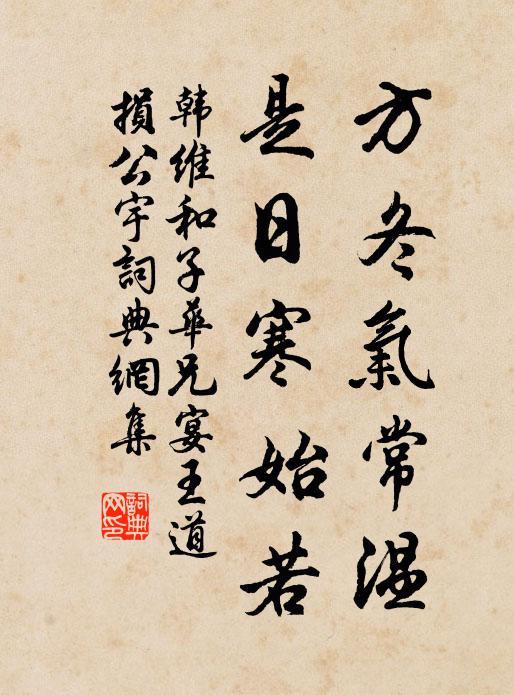 方冬氣常温
是日寒始若
韩維和子華兄宴王道
損公宇詞典網集
詞典網印